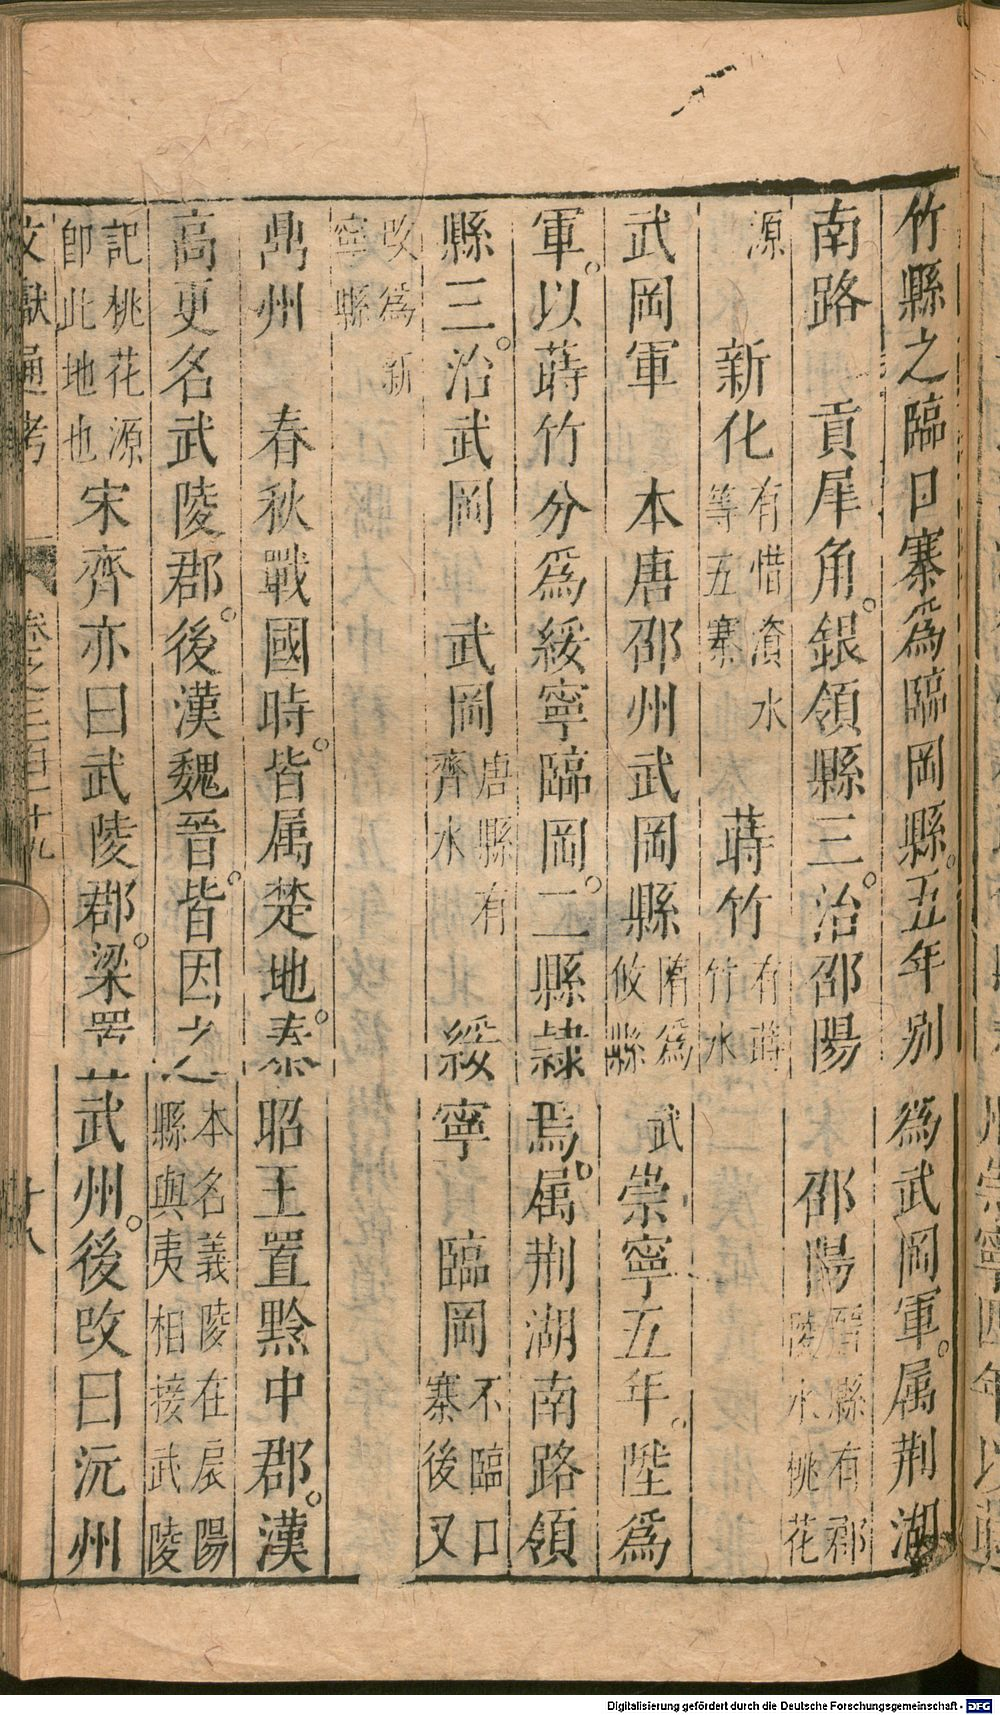 竹縣之臨口寨爲臨岡縣。五年別爲武岡軍。属荆湖
南路　貢犀角。銀領縣三。治邵陽　邵陽晉縣有郡陵水桃花
源　新化有惜濱水等五寨　蒔竹有蒔竹水
武岡軍　本唐邵州武岡縣隋爲攸縣武崇寧五年。陞爲
軍。以蒔竹分爲綏寧臨岡。二縣隷焉。属荆湖南路領
縣三。治武岡　武岡唐縣有齊水　綏寧　臨岡不臨口寨後又
改爲新寧縣
鼎州　春秋戰國時。皆属楚地。秦昭王置黔中郡。漢
高更名武陵郡。後漢魏晉。皆因之本名義陵在辰陽縣與夷相接武陵
記桃花源卽此地也宋齊亦曰武陵郡。梁置武州。後改曰沅州
文獻通考　卷之三百一十九　十八
Digitalisierung gefördert durch die Deutsche Forschungsgemeinschaft - DFG